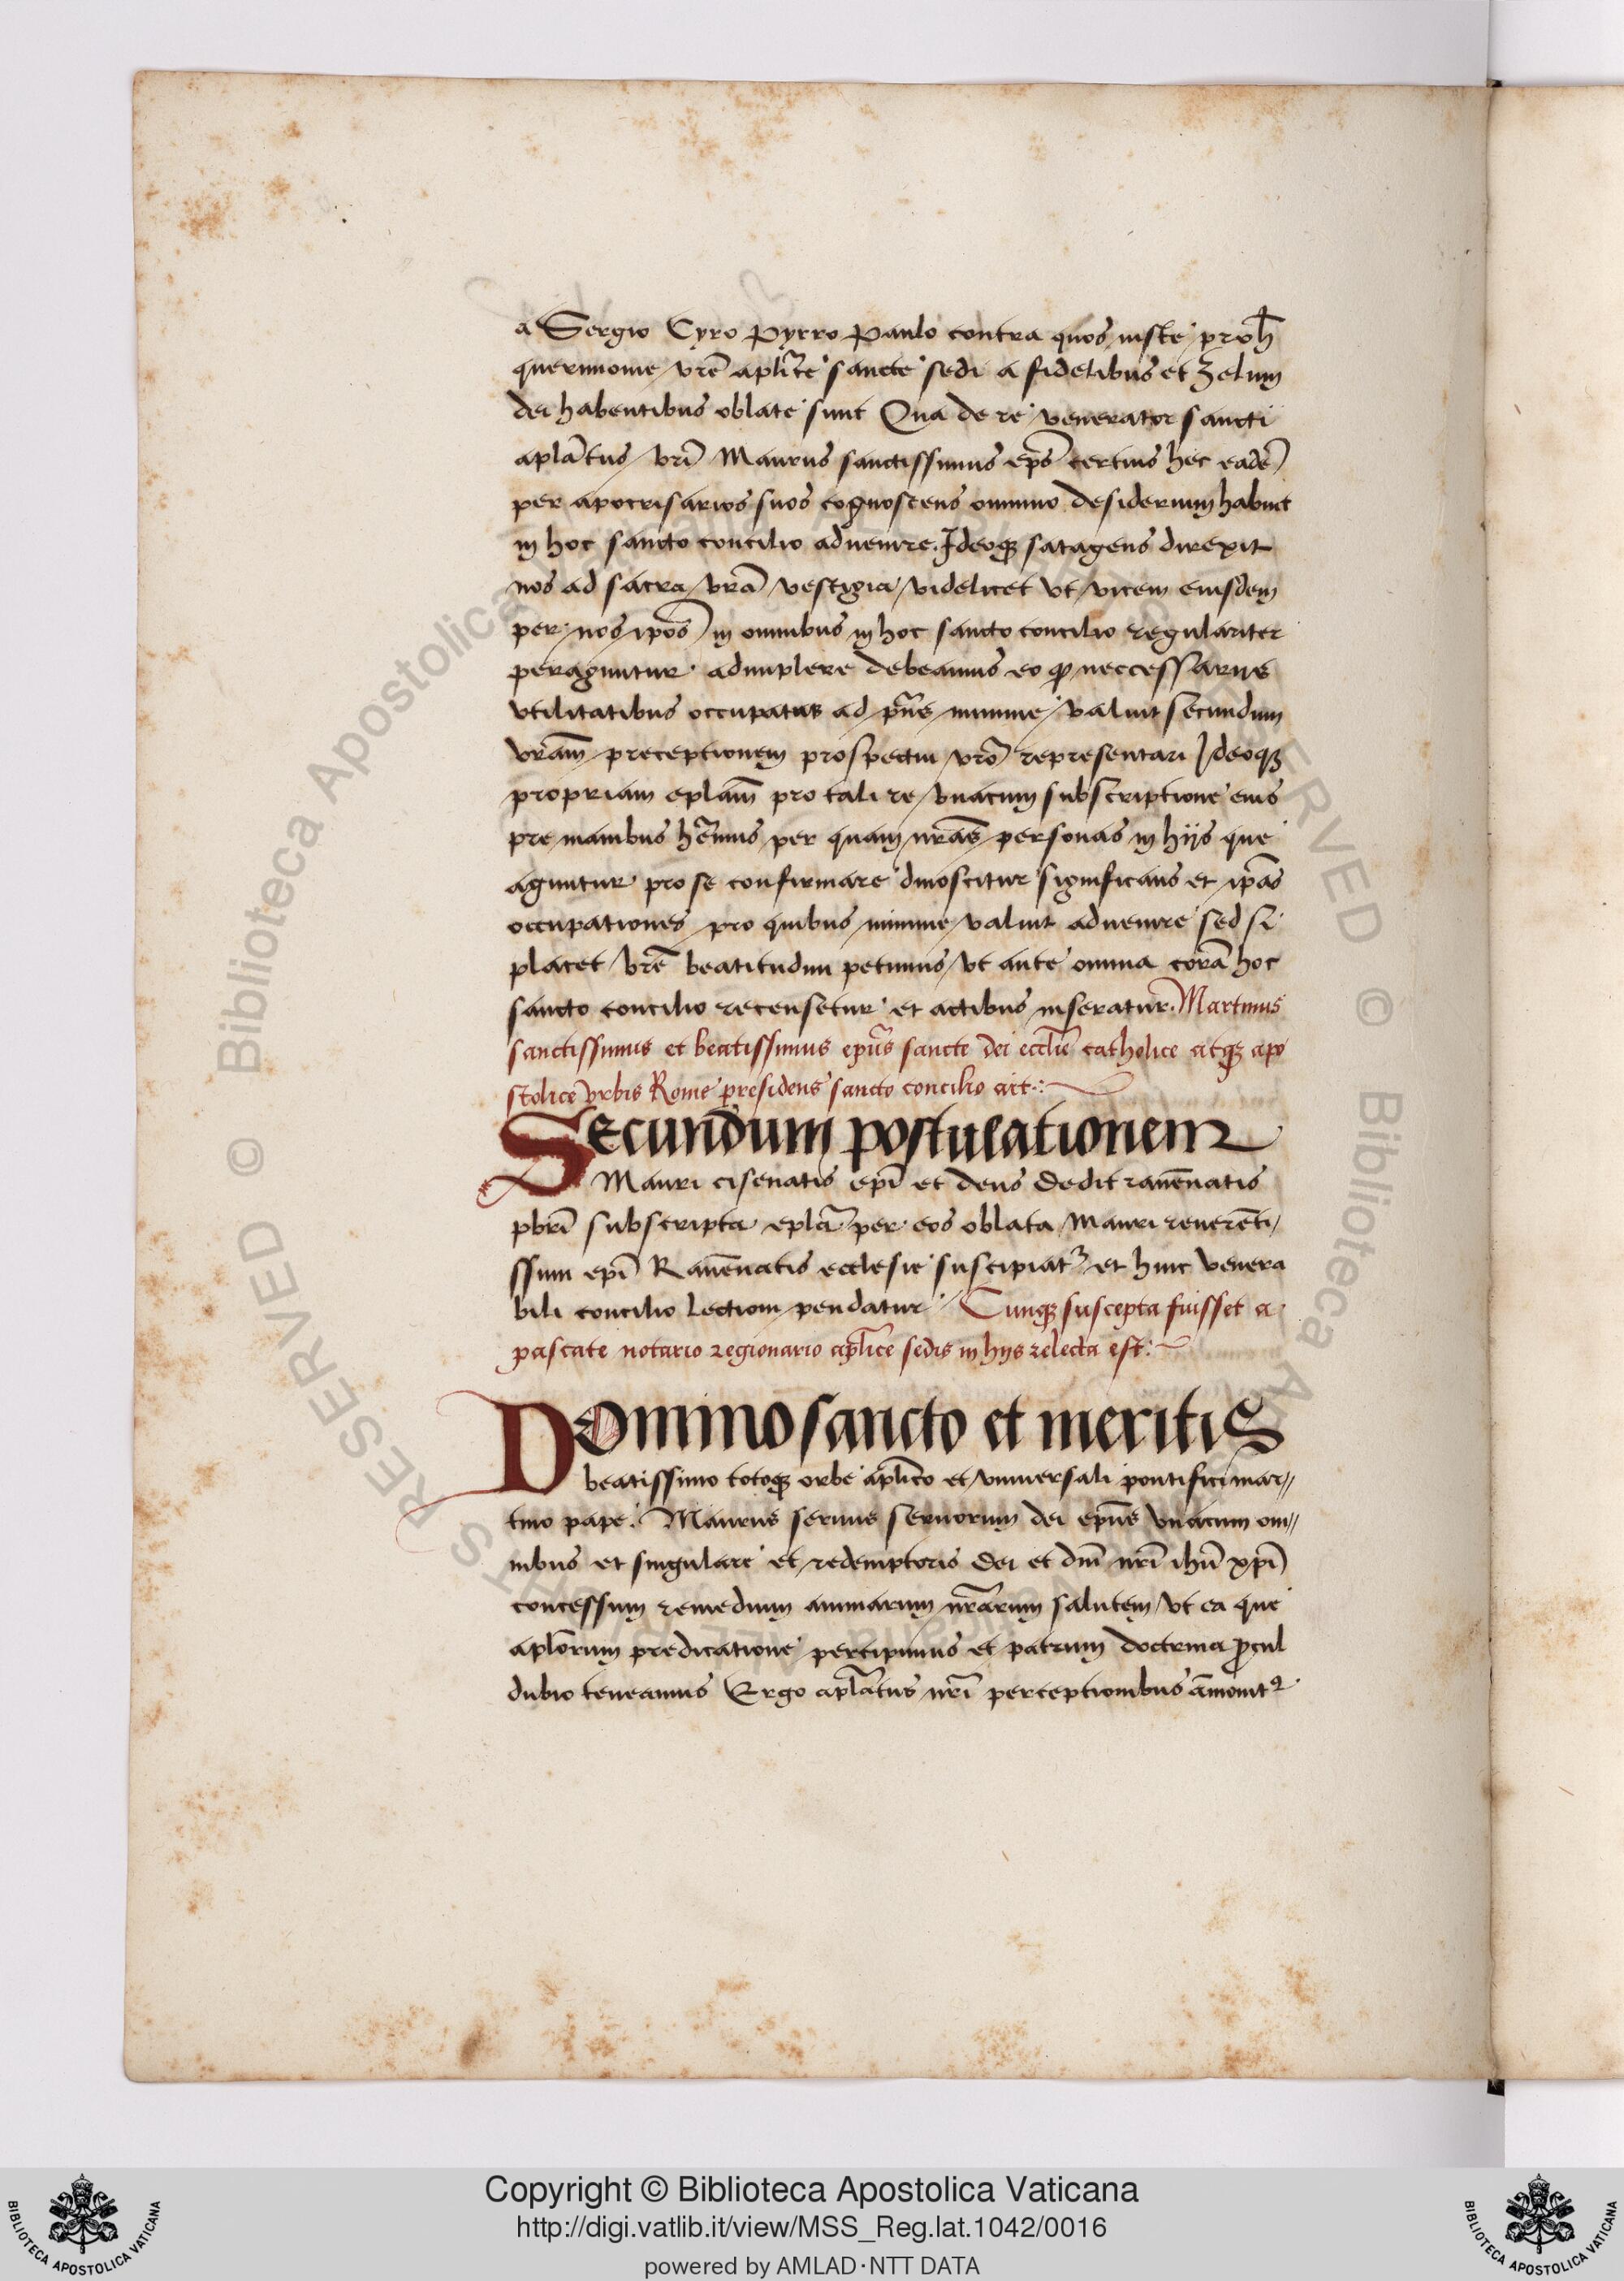 a Sergio Cyro Pyrro Paulo contra quos iuste proh̄
querimonie vr̄e aplīce sancte sedi a fidelibus et zelum
dei habentibus oblate sunt Qua de re venerator sancti
aplātus vr̄i Maurus sanctissimus ep̄s certius hec eadē
per apocrisarios suos cognoscens omnino desiderium habuit
in hoc sancto concilio aduenire. Ideoqȝ satagens direxit
nos ad sacra vr̄a vestigia videlicet vt vicem eiusdem
per nos ip̄os in omnibus in hoc sancto concilio regulariter
peraguntur adimplere debeamus eo ꝙ neccessarijs
vtilitatibus occupatus ad p̄ns minime valuit secundum
vr̄am preceptionem prospectui vr̄o representari Ideoqȝ
propriam eplām pro tali re vnacum subscriptione eius
pre manibus hēmus per quam nr̄as personas in hijs que
aguntur pro se confirmare dinoscitur significans et ip̄as
occupationes pro quibus minime valuit aduenire sed si
placet vr̄e beatitudini petimus vt ante omnia corā hoc
sancto concilio recensetur et actibus inseratur. Martinus
sanctissimus et beatissimus ep̄us sancte dei ecclīe catholice atqȝ apo
stolice vrbis Rome presidens sancto concilio ait·:
Secundum postulationem
Mauri cisenatis ep̄i et deus dedit rauēnatis
pbr̄i subscripta eplā per eos oblata Mauri reuerēti/
ssimi ep̄i Rauēnatis ecclesie suscipiatꝛ et huic venera
bili concilio lectioni pendatur Cunqȝ suscepta fuisset a
pascate notario regionario aplīce sedis in hijs relecta est:
Domino sancto et meritis
beatissimo totoqȝ orbe aplīco et vniuersali pontifici mar//
tino pape. Maurus seruus seruorum dei ep̄us vnacum om//
nibus et singulare et redemptoris dei et dn̄i nr̄i ihū xp̄i
concessum remedium animarum nr̄arum salutem vt ea que
aplōrum predicatione percipimus et patrum doctrina ꝓcul
dubio teneamus Ergo aplātus nr̄i perceptionibus āmonitꝰ
Copyright © Biblioteca Apostolica Vaticana
http://digi.vatlib.it/view/MSS_Reg.lat.1042/0016
powered by AMLAD·NTT DATA